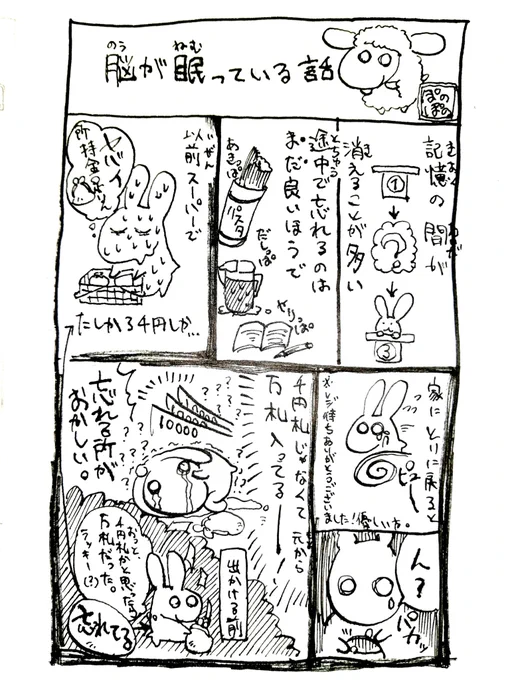 脳が眠っている話
のう
ねむ
ぽのぽの
記憶の間が
きおく
あいだ
①
?
③
消えることが多い
途中で忘れるのは
とちゅう
まだ良いほうで
あきっぱ
パスタ
だしっぱ
やりっぱ
以前スーパーで
いぜん
ヤバイ
所持金足りん
たしか3千円しか…
家にとりに戻ると
ピュー
※レジ待ちありがとうございました!優しい方。
ん?
パカッ
千円札じゃなくて元から
万札入ってるー
10000
忘れる所が
おかしい。
出かける前
おっと、
千円札かと思ったら
万札だった。
ラッキー(?)
忘れてる